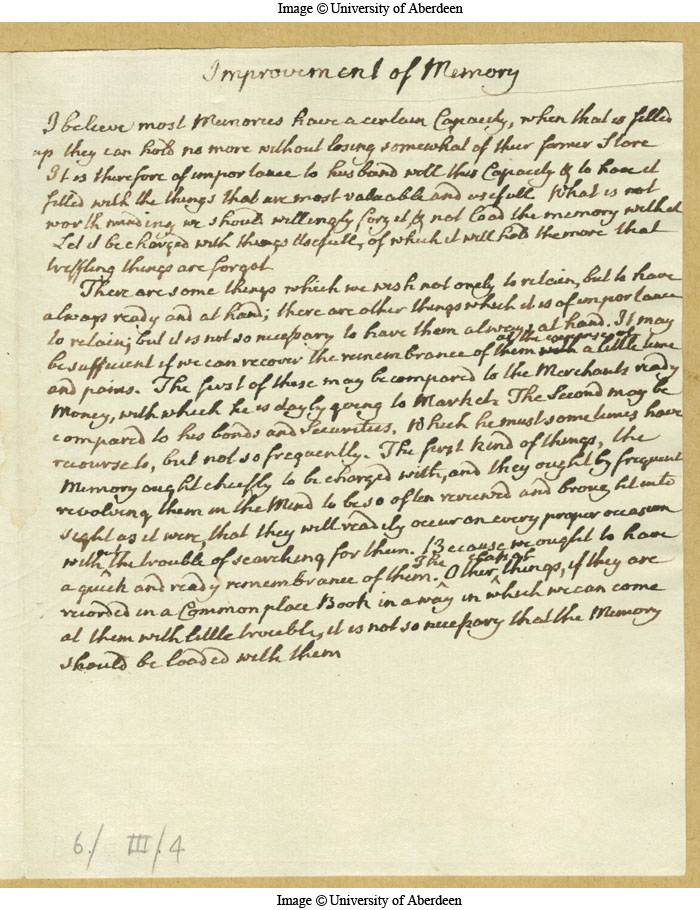 Image © University of Aberdeen
Improvement of Memory
I believe most Memories have a certain Capacity, when that is filled
up they can hold no more without losing somewhat of their former Store
It is therefore of importance to husband well this Capacity & to have it
filled with the things that are most valuable and usefull What is not
worth minding we should willingly forget & not load the memory with it
Let it be charged with things Usefull, of which it will hold the more that
triffling things are forgot
There are some things which we wish not onely to retain, but to have
always ready and at hand; there are other things which it is of importance
to retain; but it is not so necessary to have them always at hand. It may
at the expense of
be sufficient if we can recover the remembrance of them with a little time
and pains. The first of these may be compared to the Merchants ready
Money, with which he is dayly going to Market. The Second may be
compared to his bonds and Securities, Which he must sometimes have
recourse to, but not so frequently. The first kind of things, the
Memory ought chiefly to be charged with, and they ought by frequent
revolving them in the Mind to be so often reviewed and brought into
sight as it were, that they will readily occur on every proper occasion
with the trouble of searching for them. Because we ought to have
The
a quick and ready remembrance of them. Other things, if they are
recorded in a Common place Book in a way in which we can come
at them with little trouble, it is not so necessary that the Memory
should be loaded with them
6/ III/.4
Image © University of Aberdeen